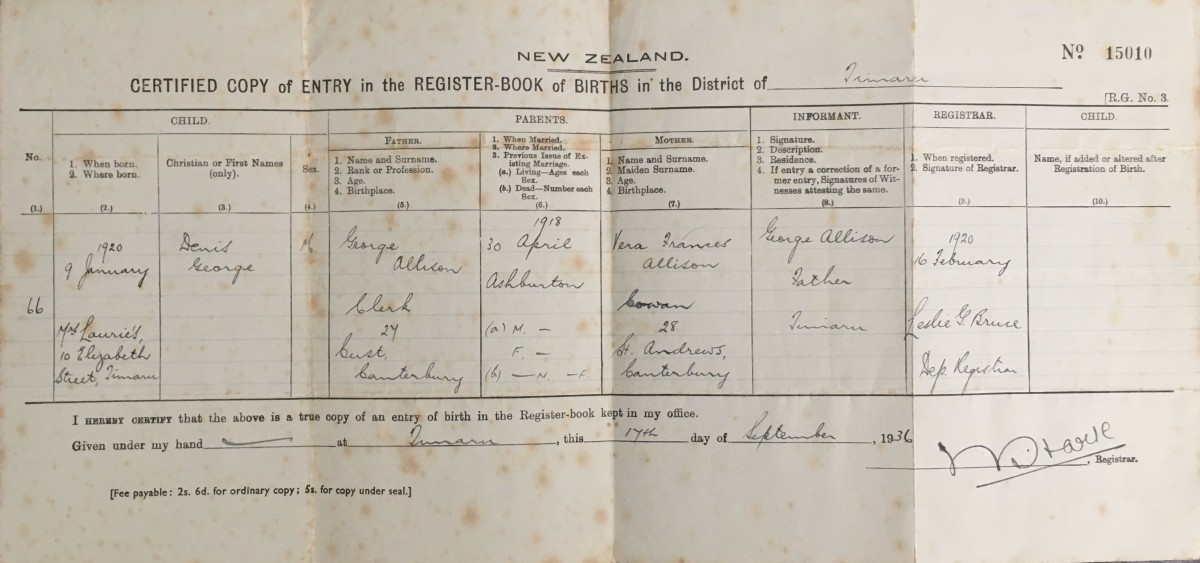 NEW ZEALAND.
Nº 15010
CERTIFIED COPY of ENTRY in the REGISTER-BOOK of BIRTHS in the District of Timaru
[R.G. No. 3.
CHILD.
PARENTS.
INFORMANT.
REGISTRAR.
CHILD.
No.
(1.)
1. When born.
2. Where born.
(2.)
Christian or First Names
(only).
(3.)
Sex.
(4.)
FATHER.
1. Name and Surname.
2. Rank or Profession.
3. Age.
4. Birthplace.
(5.)
1. When Married.
2. Where Married.
3. Previous Issue of Ex-
isting Marriage.
(a.) Living—Ages each
Sex.
(b.) Dead—Number each
Sex.
(6.)
MOTHER.
1. Name and Surname.
2. Maiden Surname.
3. Age.
4. Birthplace.
(7.)
1. Signature.
2. Description.
3. Residence.
4. If entry a correction of a for-
mer entry, Signatures of Wit-
nesses attesting the same.
(8.)
1. When registered.
2. Signature of Registrar.
(9.)
Name, if added or altered after
Registration of Birth.
(10.)
66
1920
9 January
Mrs Laurie's,
10 Elizabeth
Street, Timaru
Denis
George
M.
George
Allison
Clerk
27
Cust,
Canterbury
1918
30 April
Ashburton
(a) M. —
F. —
(b) — M. — F.
Vera Frances
Allison
Cowan
28
St. Andrews,
Canterbury
George Allison
Father
Timaru
1920
16 February
Leslie G. Bruce
Dep. Registrar
I HEREBY CERTIFY that the above is a true copy of an entry of birth in the Register-book kept in my office.
Given under my hand at Timaru, this 17th day of September, 1936
, Registrar.
[Fee payable: 2s. 6d. for ordinary copy; 5s. for copy under seal.]